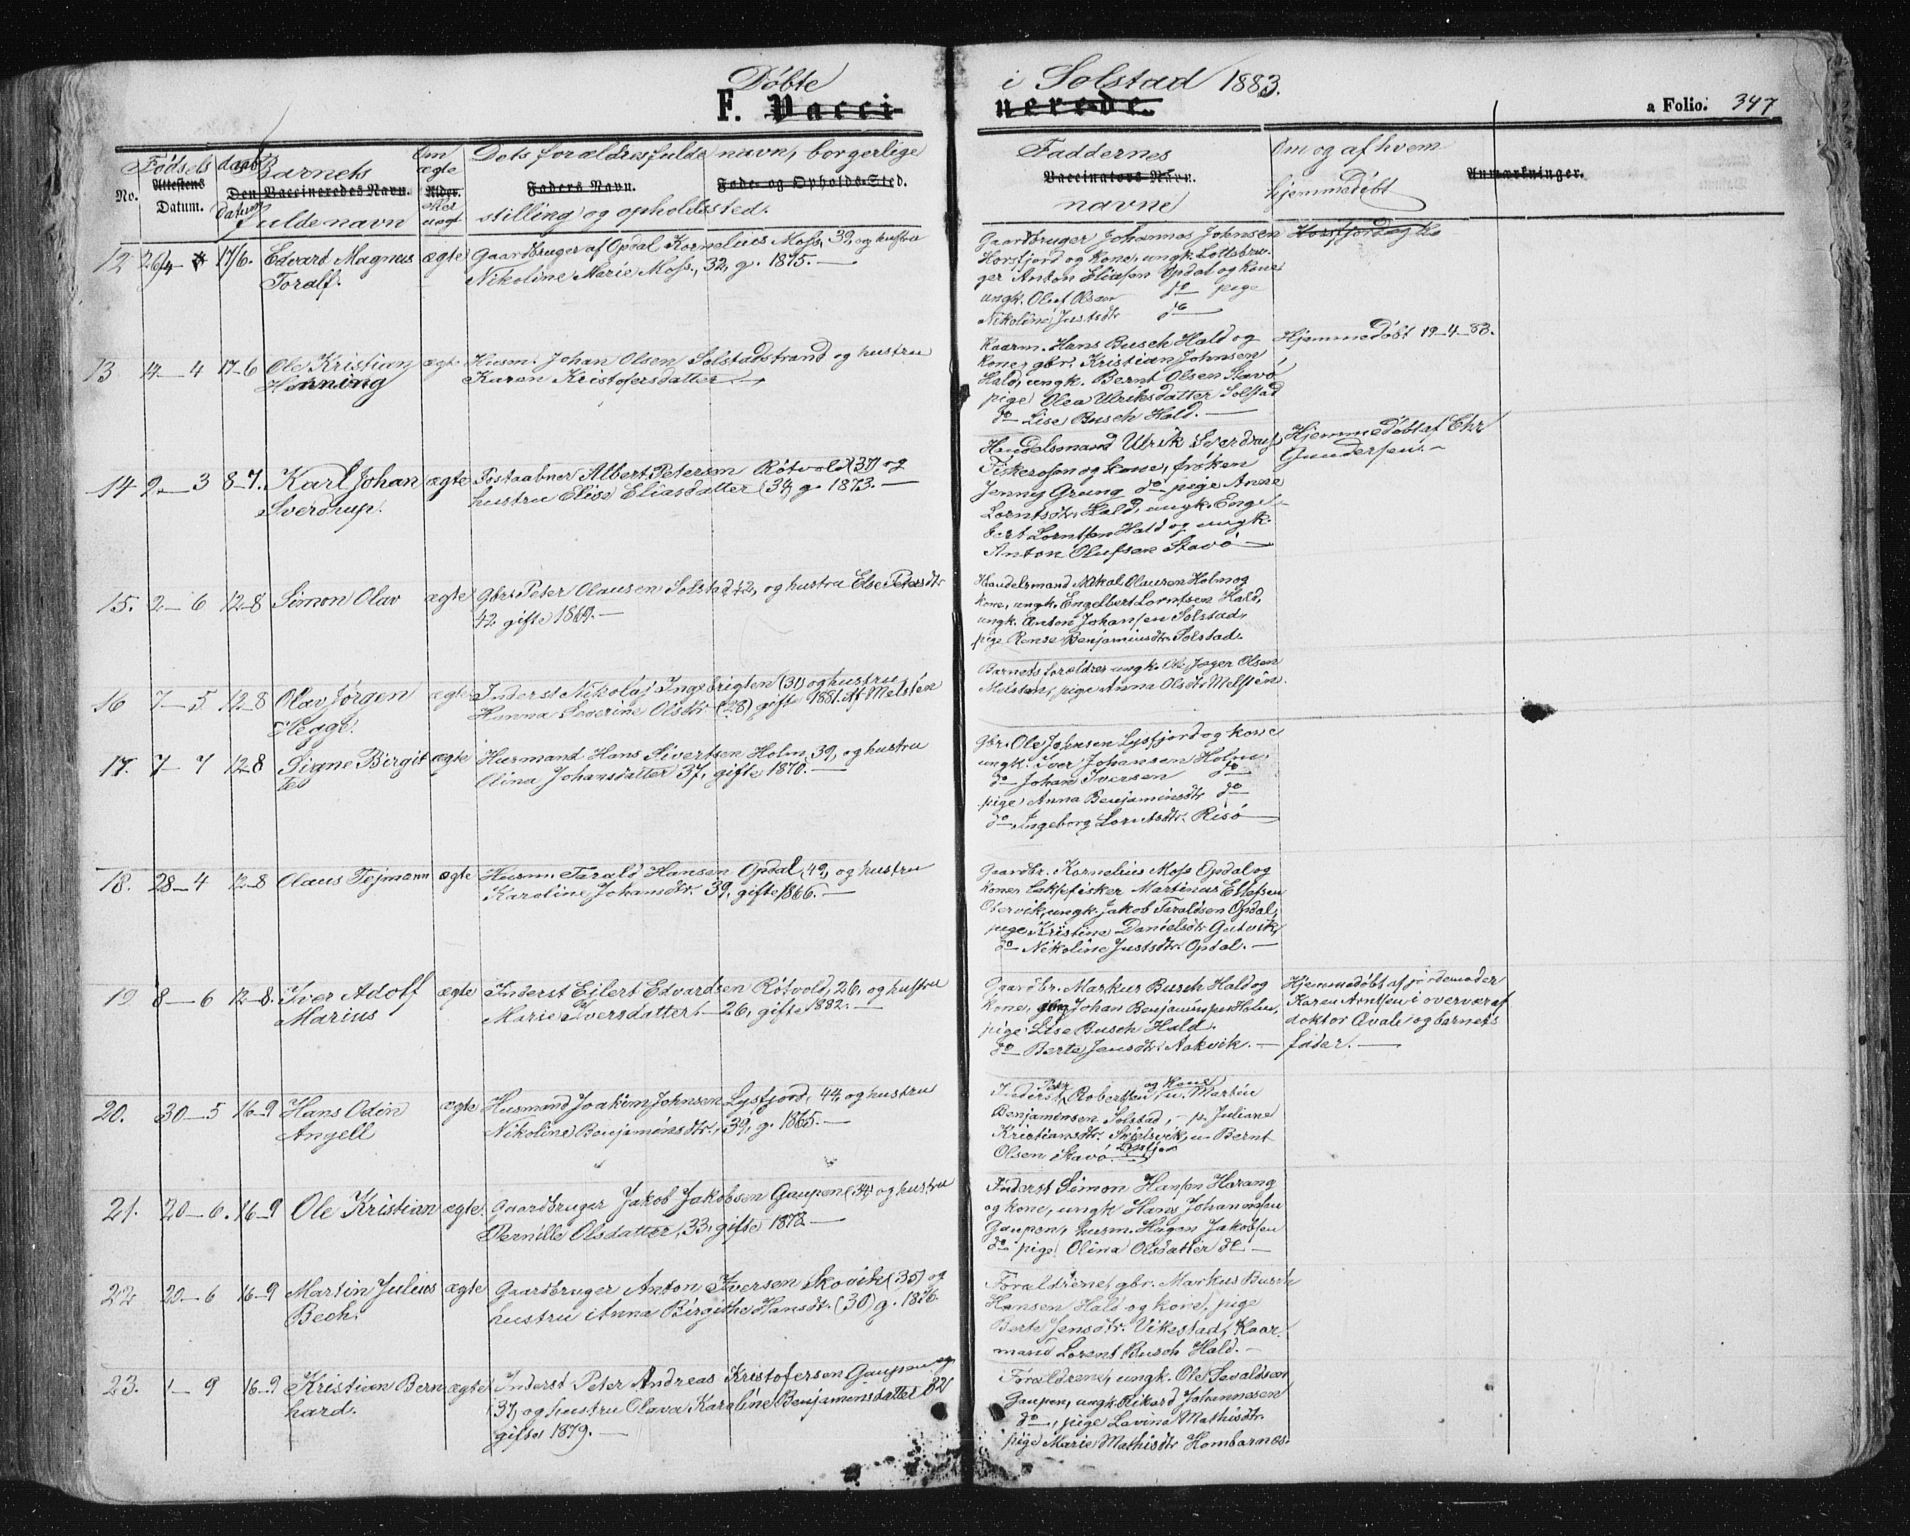 Døbte i Solstad 1883.
F. Vaccinerede. a Folio. 347
No. Fødsels Attestens Datum. daabs datum Barnets Den Vaccineredes Navn. fulde navn Om ægte Alder. eller uægt Dets forældres fulde navn, borgerlige Faders Navn. Føde- og Opholds-Sted. stilling og opholdssted. Faddernes Vaccinators Navn. navne Om og af hvem hjemmedøbt Anmærkninger.
12 26/4 17/6. Edvard Magnus ægte Gaardbruger af Opdal Kornelius Moss, 39, og hustru
Toralf. Nikoline Marie Moss, 32, g. 1875.—
Gaardbruger Johannes Johnsen
Horsfjord og kone, ungk. Lottsbru-
ger Anton Eliasen Opdal og kone
ungk. Oluf Olsen do pige
Nikoline Justsdtr do
13 14—4 17—6 Ole Kristian ægte Husm. Johan Olsen Solstadstrand og hustru
Henning Karen Kristofersdatter.—
Kaarm. Hans Busch Hald og
kone, gbr. Kristian Johnsen
Hald, ungk. Bernt Olsen Stavø
pige Olea Ulriksdatter Solstad
do Lise Busch Hald.—
Hjemmedøbt 19—4—83.
14 9.—3 8—7. Karl Johan ægte Postaabner Albert Petersen Røtvold (37) og
Sverdrup. hustru Elise Eliasdatter (34) g. 1873.—
Handelsmand Ulrik Sverdrup
Fiskerosen og kone, frøken
Jenny Grung do pige Anne
Lorntsdtr. Hald, ungk. Engel-
bert Lorntsen Hald og ungk.
Anton Olufsen Stavø—
Hjemmedøbt af Chr
Gundersen.—
15. 2—6 12—8 Simon Olav ægte Gbr. Peter Olausen Solstad 42, og hustru Else Petersdtr
42 gifte 1869.—
Handelsmand Nikal Olausen Holm og
kone, ungk. Engelbert Lorntsen Hald,
ungk. Anton Johansen Solstad,
pige Rense Benjaminsdtr. Solstad.
16 7—5 12—8 Olav Jørgen ægte Inderst Nikolaj Ingebrigten (31) og hustru
Hegge. Hanna Severine Olsdtr (28) gifte 1881. Af Melstén
Barnets forældrer ungk. Ole Jæger Olsen
pige Anna Olsdtr Melstén.
17. 7—7 12—8 Signe Birgit ægte Husmand Hans Sivertsen Holm 39, og hustru
te Olina Johansdatter 37, gifte 1870.—
Gbr. Ole Johnsen Lysfjord og kone
ungk. Iver Johansen Holm,
do Johan Iversen do
pige Anna Benjaminsdtr do
do Ingeborg Lorntsdtr. Risø—
18. 28—4 12—8 Olaus Tejmann ægte Husm. Tarald Hansen Opdal 49, og hustru
Karoline Johansdtr. 39, gifte 1866.—
Gaardbr. Kornelius Moss Opdal og
kone Laxefisker Martinus Ellefsen
Otervik, ungk. Jakob Taraldsen Opdal,
pige Kristine Danielsdtr Gutvik,
do Nikoline Justsdtr. Opdal.—
19 8—6 12—8. Iver Adolf ægte Inderst Eilert Edvardsen Røtvold, 26, og hustru
Marius Marie Iversdatter—26, gifte 1882.—
Gaardbr. Markus Busch Hald og
kone, Johan Benjaminsen Holm,
pige Lise Busch Hald.
do Berte Jensdtr. Aakvik.—
Hjemmedøbt af jordemoder
Karen Arntsen i overvær af
doktor Qvale og barnets
fader.—
20. 30—5 16—9 Hans Odin ægte Husmand Joakim Johnsen Lysfjord, 44, og hustru
Angell Nikoline Benjaminsdtr., 39, g. 1865.—
Inderst Peder Robertsen og kone u. Martin
Benjaminsen Solstad,—p. Juliane
Kristiansdtr. Skjelsvik, u. Bernt
Olsen Stavø.
21. 20—6. 16—9 Ole Kristian ægte. Gaardbruger Jakob Jakobsen Gaupen (34) og hustru
Pernille Olsdatter, 33, gifte 1872—
Inderst Simon Hansen Harang
og kone, ungk Hans Johannesen
Gaupen, husm. Hagen Jakobsen
do, pige Olina Olsdatter do—
22 20—6 16—9 Martin Julius ægte Gaardbruger Anton Iversen Skovik (35) og
Bech. hustru Anna Birgithe Hansdt. (30) g. 1876.
Foraldrene, gbr. Markus Busch
Hansen Hald og kone, pige
Berte Jensdtr. Vikestad, Kaar-
mand Lorent Busch Hald.—
23. 1—9 16—9 Kristian Bern ægte Inderst Peter Andreas Kristofersen Gaupen og
hard. (37, og hustru Olava Karoline Benjaminsdatter 32
gifte 1879.—
Foraldrene, ungk. Ole Sevaldsen
Gaupen, ungk Rikard Johannesen
do, pige Lavina Mathisdtr.
pige Marie Mathisdtr Hombornes.